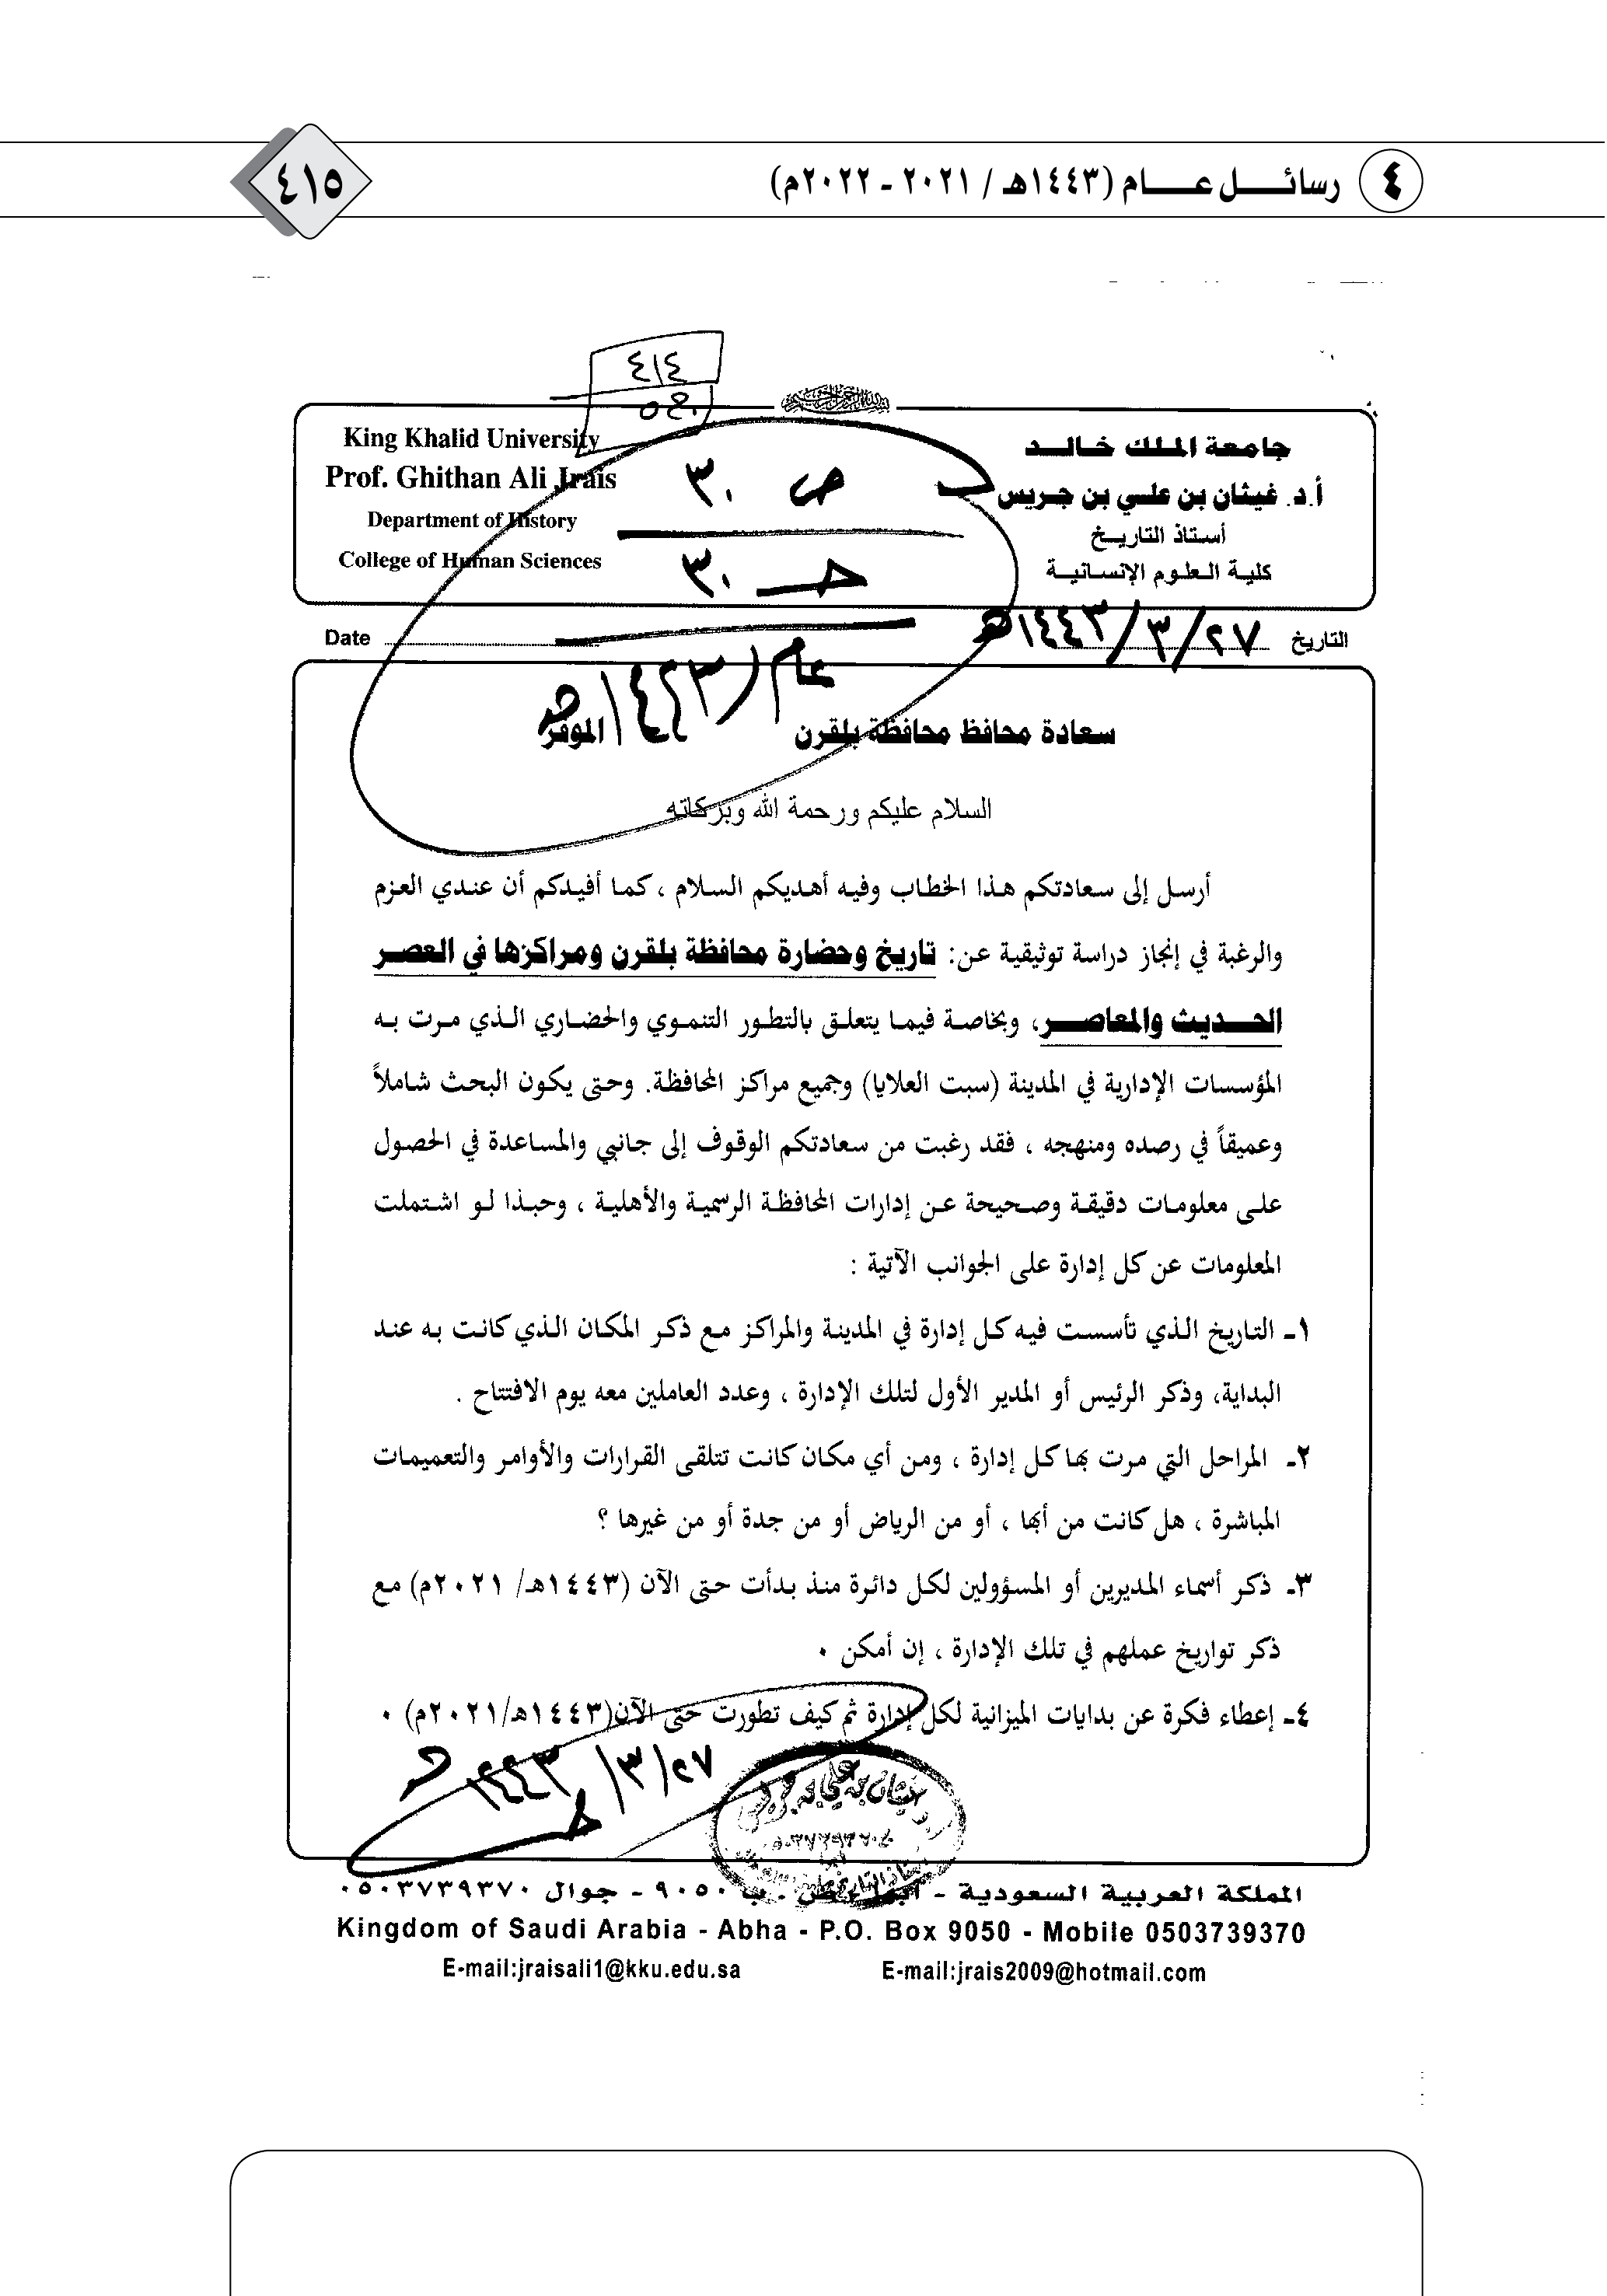 ٤ رسائل عام (١٤٤٣هـ / ٢٠٢١ - ٢٠٢٢م)
٤١٥
٤١٤
جامعة الملك خالد
أ.د. غيثان بن علي بن جريس
أستاذ التاريخ
كلية العلوم الإنسانية
King Khalid University
Prof. Ghithan Ali Jrais
Department of History
College of Human Sciences
ص ٣٠
حـ ٣٠
عام ١٤٤٣هـ
التاريخ ٢٧/٣/١٤٤٣هـ
Date
سعادة محافظ محافظة بلقرن الموقر
السلام عليكم ورحمة الله وبركاته
أرسل إلى سعادتكم هذا الخطاب وفيه أهديكم السلام ، كما أفيدكم أن عندي العزم
والرغبة في إنجاز دراسة توثيقية عن: تاريخ وحضارة محافظة بلقرن ومراكزها في العصر
الحديث والمعاصر، وبخاصة فيما يتعلق بالتطور التنموي والحضاري الذي مرت به
المؤسسات الإدارية في المدينة (سبت العلايا) وجميع مراكز المحافظة. وحتى يكون البحث شاملاً
وعميقاً في رصده ومنهجه ، فقد رغبت من سعادتكم الوقوف إلى جانبي والمساعدة في الحصول
على معلومات دقيقة وصحيحة عن إدارات المحافظة الرسمية والأهلية ، وحبذا لو اشتملت
المعلومات عن كل إدارة على الجوانب الآتية :
١- التاريخ الذي تأسست فيه كل إدارة في المدينة والمراكز مع ذكر المكان الذي كانت به عند
البداية، وذكر الرئيس أو المدير الأول لتلك الإدارة ، وعدد العاملين معه يوم الافتتاح .
٢- المراحل التي مرت بها كل إدارة ، ومن أي مكان كانت تتلقى القرارات والأوامر والتعميمات
المباشرة ، هل كانت من أبها ، أو من الرياض أو من جدة أو من غيرها ؟
٣- ذكر أسماء المديرين أو المسؤولين لكل دائرة منذ بدأت حتى الآن (١٤٤٣هـ/ ٢٠٢١م) مع
ذكر تواريخ عملهم في تلك الإدارة ، إن أمكن .
٤- إعطاء فكرة عن بدايات الميزانية لكل إدارة ثم كيف تطورت حتى الآن(١٤٤٣هـ/٢٠٢١م) .
٢٧/٣/١٤٤٣هـ
المملكة العربية السعودية - أبها - ص . ب ٩٠٥٠ - جوال ٠٥٠٣٧٣٩٣٧٠
Kingdom of Saudi Arabia - Abha - P.O. Box 9050 - Mobile 0503739370
E-mail:jraisali1@kku.edu.sa E-mail:jrais2009@hotmail.com